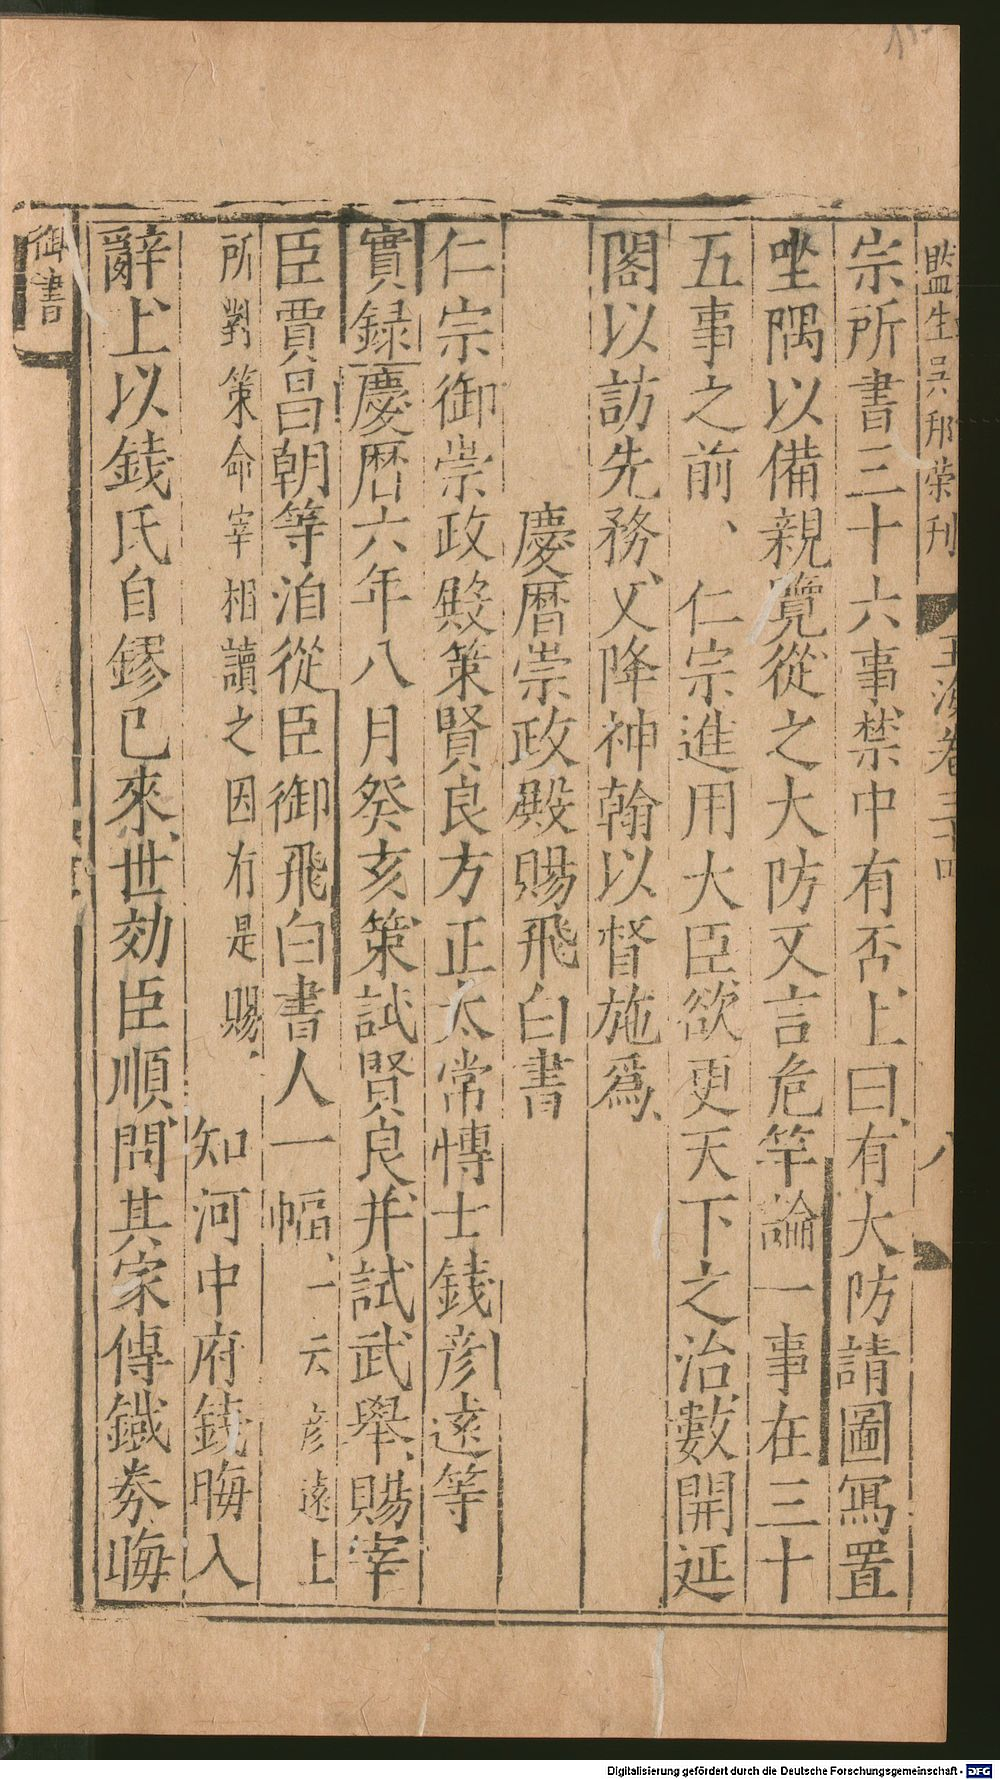 監生吳邦榮刊　玉海卷三十四　八
宗所書三十六事禁中有否上曰有大防請圖寫置
坐隅以備親覽從之大防又言危竿論一事在三十
五事之前、仁宗進用大臣欲更天下之治數開延
閣以訪先務又降神翰以督施爲
慶曆崇政殿賜飛白書
仁宗御崇政殿策賢良方正太常博士錢彥遠等
實錄慶曆六年八月癸亥策試賢良并試武舉賜宰
臣賈昌朝等洎從臣御飛白書人一幅、一云彥遠上
所對策命宰相讀之因有是賜、知河中府錢晦入
辭上以錢氏自鏐已來世効臣順問其家傳鐵券晦
御書
Digitalisierung gefördert durch die Deutsche Forschungsgemeinschaft - DFG